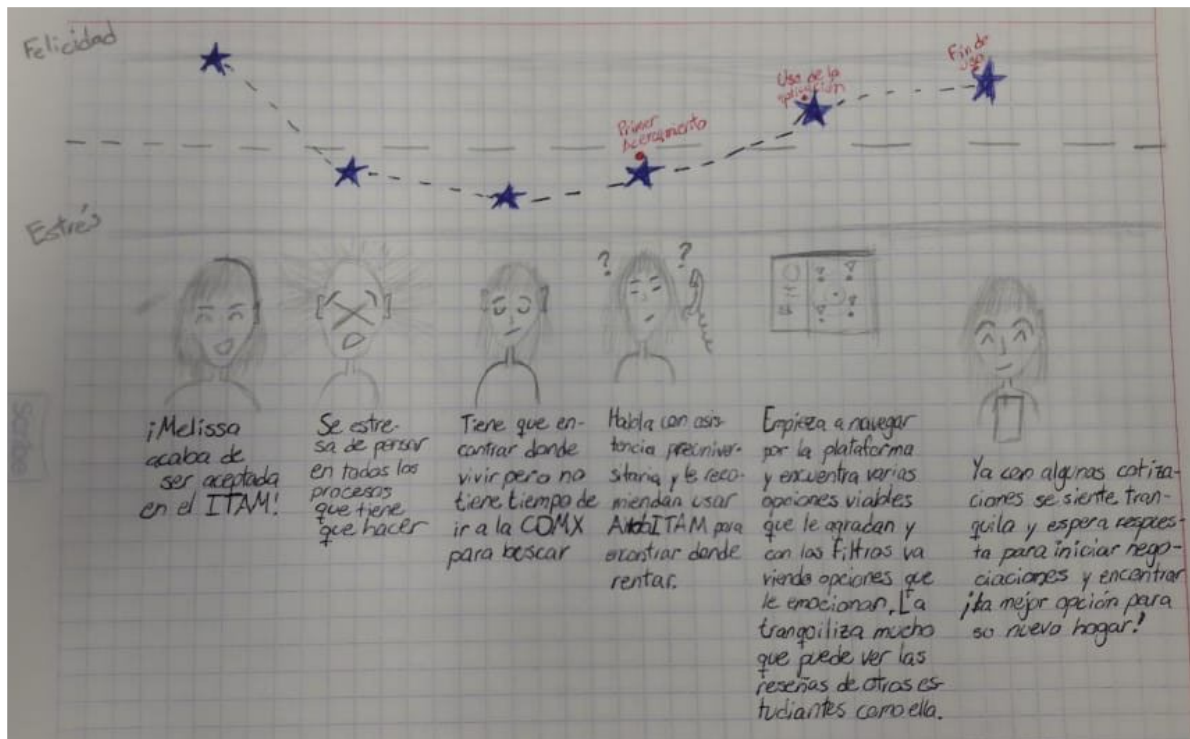 Felicidad
Estrés
Primer
Acercamiento
Uso de la
aplicación
Fin de
Uso
? ?
¡Melissa
acaba de
ser aceptada
en el ITAM!
Se estre-
sa de pensar
en todos los
procesos
que tiene
que hacer
Tiene que en-
contrar donde
vivir pero no
tiene tiempo de
ir a la CDMX
para buscar
Habla con asis-
tencia preuniver-
sitaria y le reco-
miendan usar
para
encontrar donde
rentar.
Empieza a navegar
por la plataforma
y encuentra varias
opciones viables
que le agradan y
con los filtros va
viendo opciones que
le emocionan. La
tranquiliza mucho
que puede ver las
reseñas de otros es-
tudiantes como ella.
Ya con algunas cotiza-
ciones se siente tran-
quila y espera respues-
ta para iniciar nego-
ciaciones y encontrar
¡la mejor opción para
su nuevo hogar!
Scribe